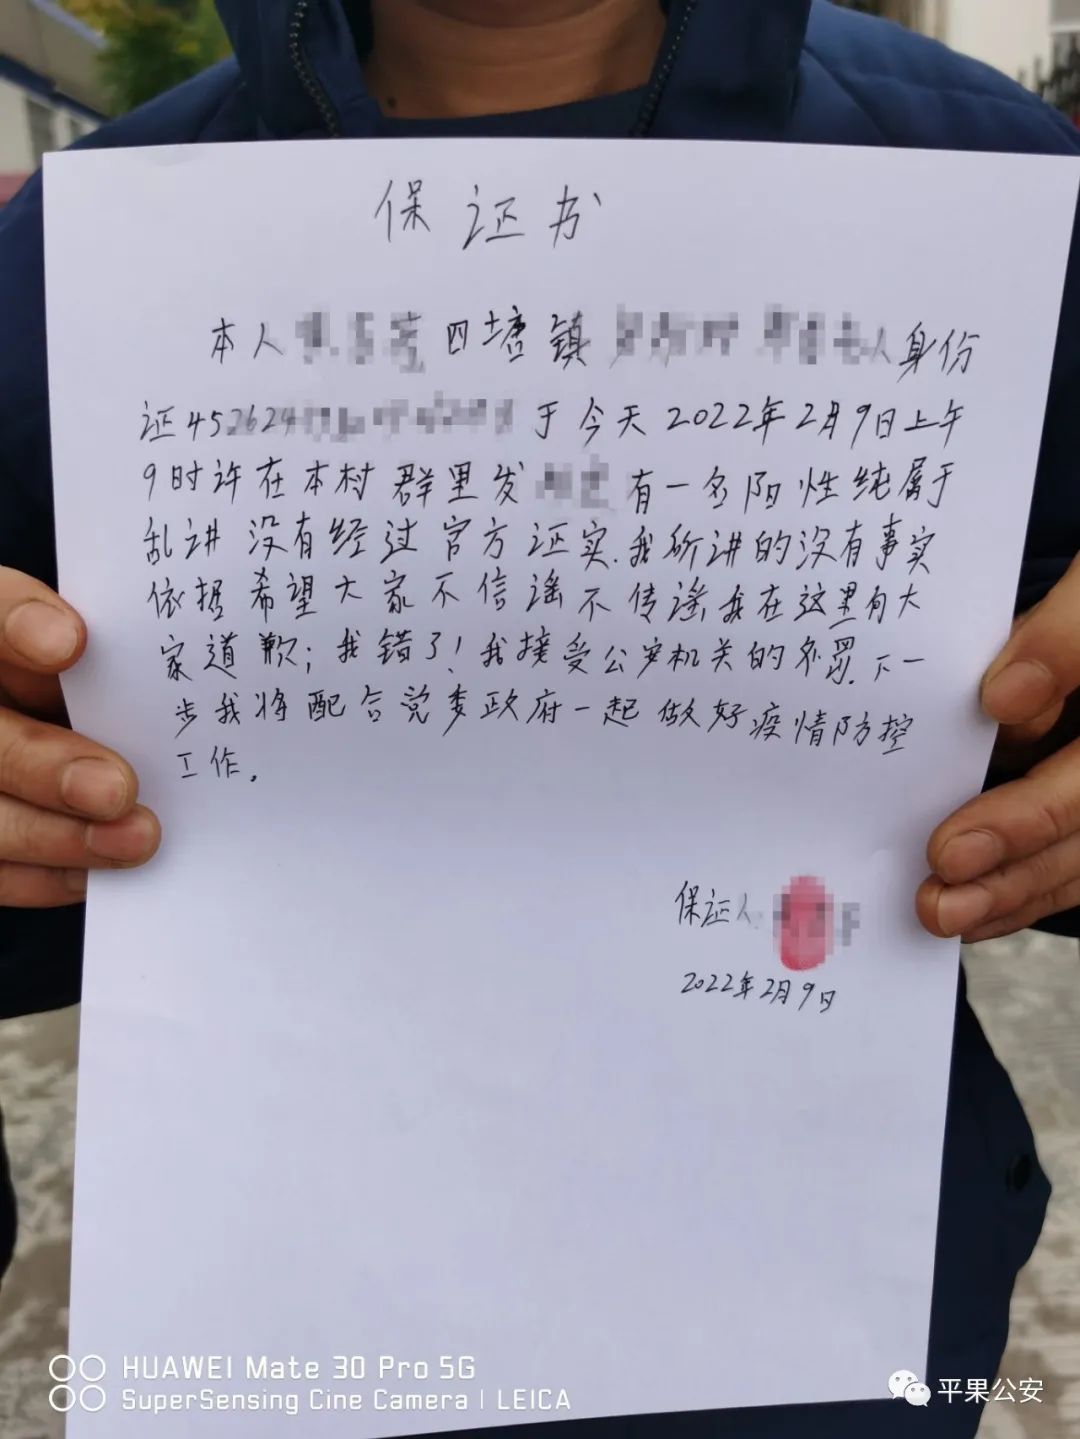 保证书
本人 四塘镇 人身份
证452624 于今天2022年2月9日上午
9时许在本村群里发 有一名阳性纯属于
乱讲没有经过官方证实.我所讲的没有事实
依据希望大家不信谣不传谣我在这里向大
家道歉;我错了!我接受公安机关的处罚.下一
步我将配合党委政府一起做好疫情防控
工作.
保证人
2022年2月9日
HUAWEI Mate 30 Pro 5G
SuperSensing Cine Camera | LEICA
平果公安